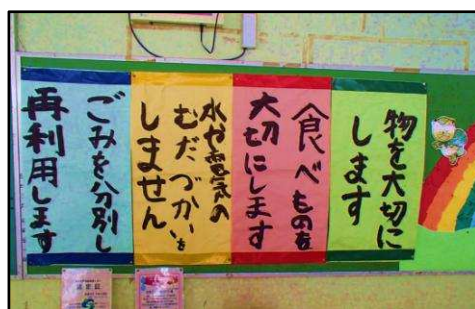 物を大切に
します
食べものを
大切にします
水や電気の
むだづかいを
しません
ごみを分別し
再利用します